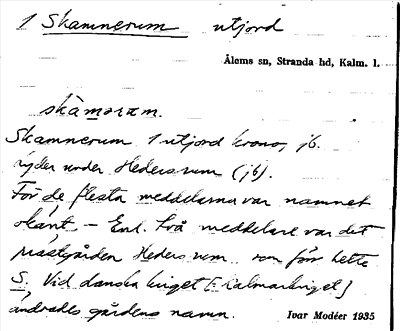 1 Skamnerum utjord
Ålems sn, Stranda hd, Kalm. l.
skàmərum.
Skamnerum 1 utjord krono, jb.
lyder under Hedersrum (jb).
För de flesta meddelarna var namnet
okänt. – Enl. två meddelare var det
prästgården Hedersrum som förr hette
S. Vid danska kriget [: Kalmarkriget]
ändrades gårdens namn.
Ivar Modéer 1935